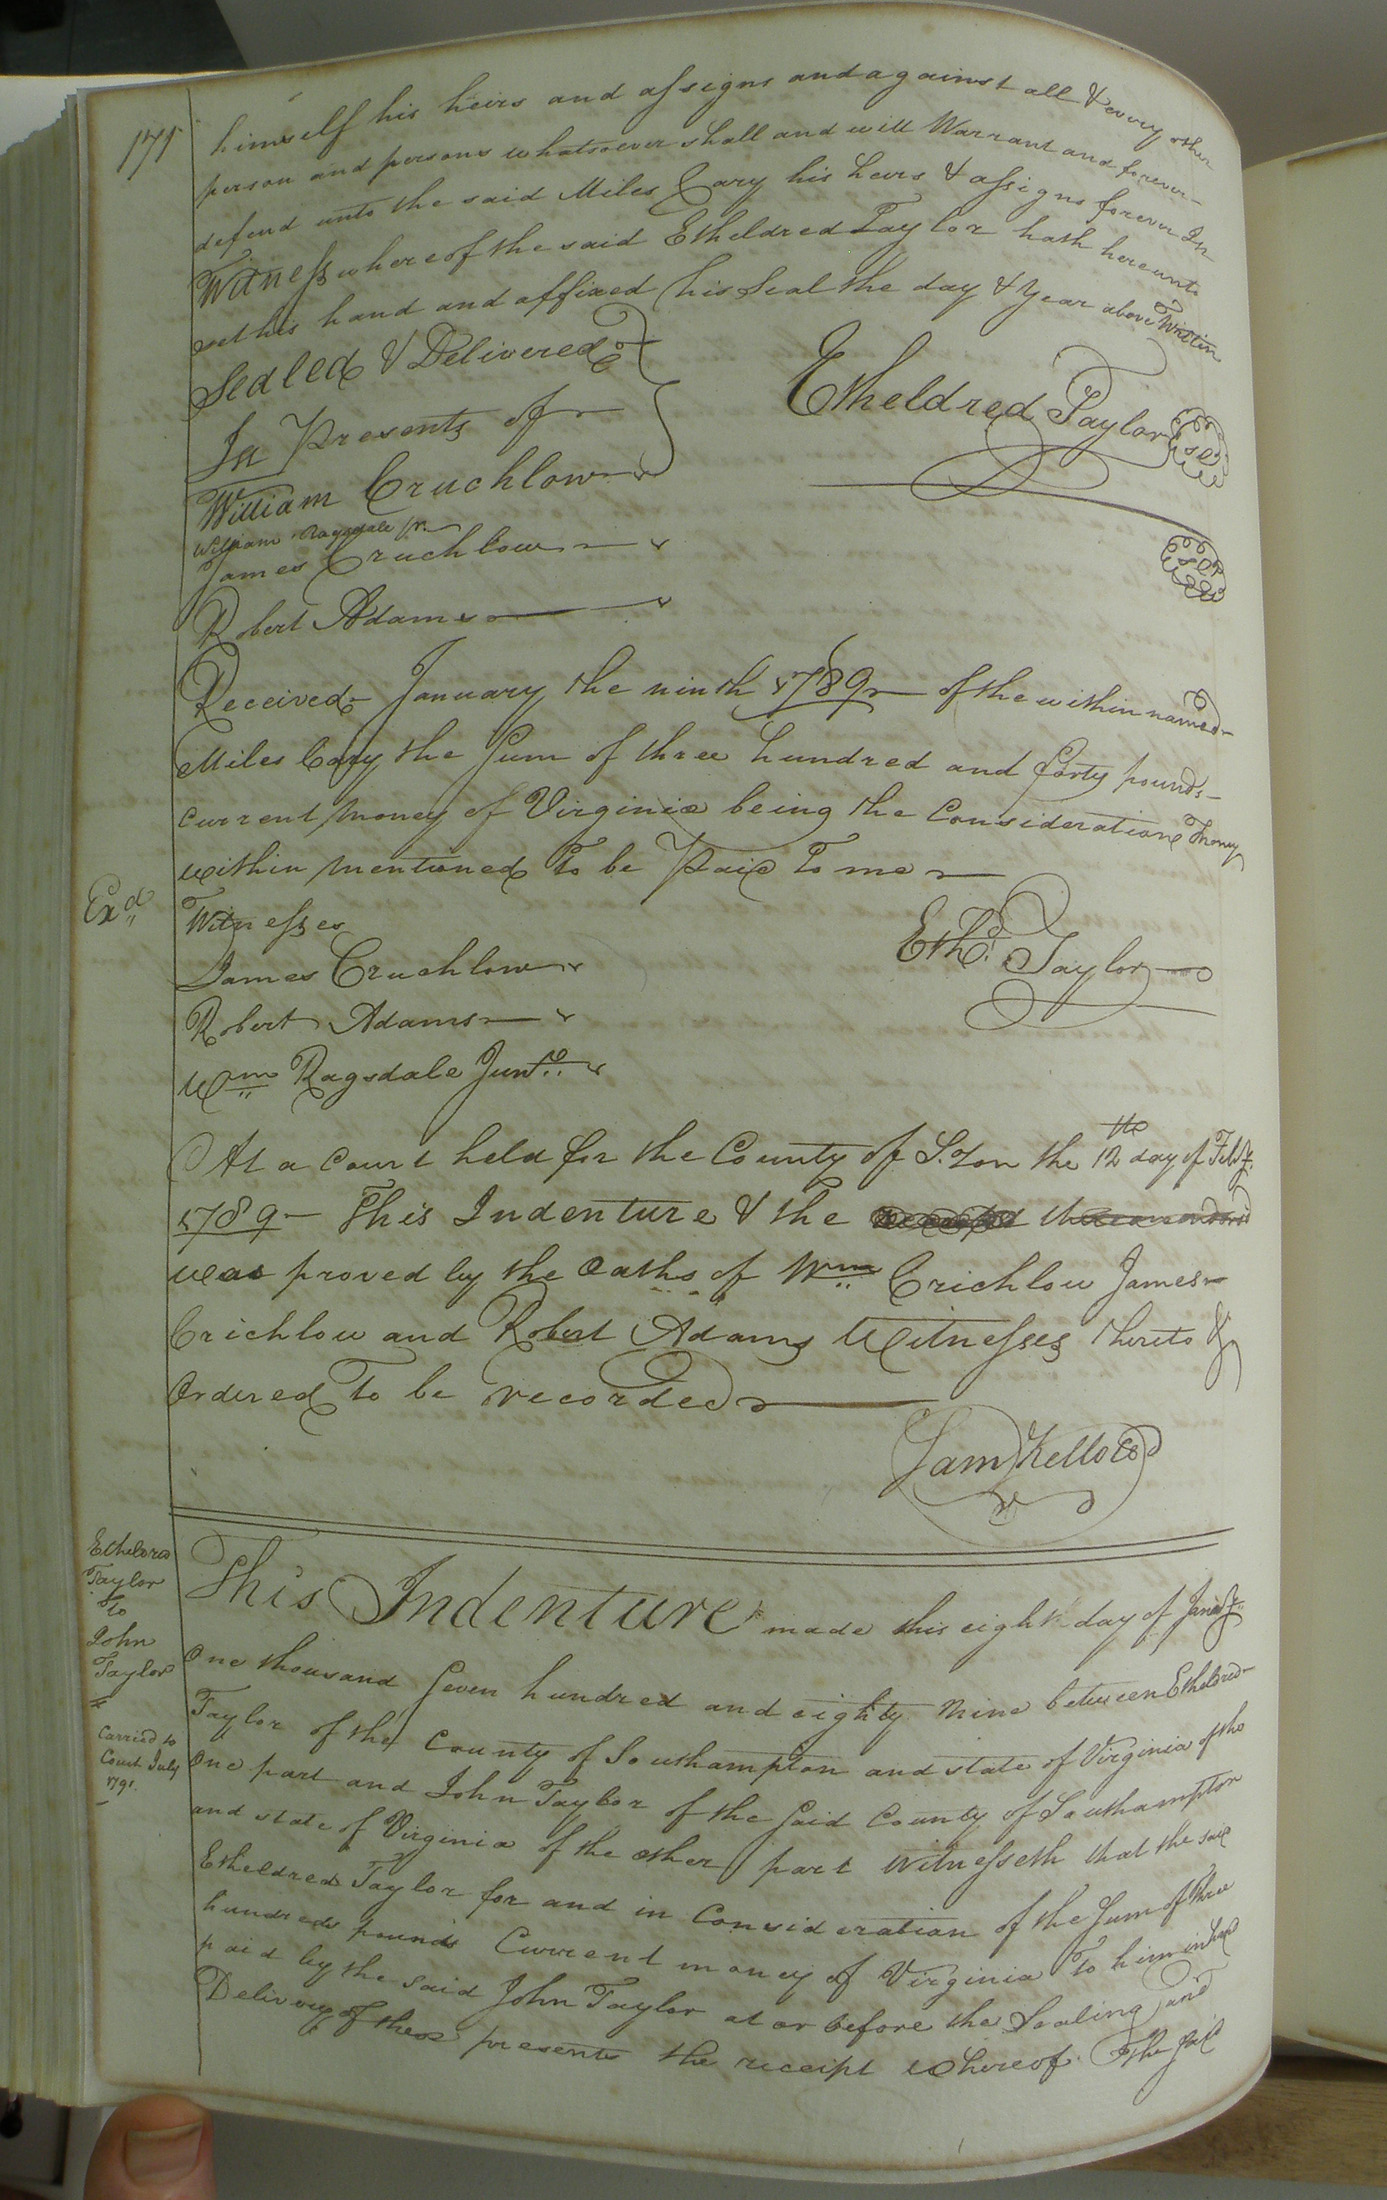 171
himself his heirs and assigns and against all & every other
person and persons whatsoever shall and will Warrant and forever
defend unto the said Miles Cary his heirs & assigns forever In
Witness whereof the said Etheldred Taylor hath hereunto
set his hand and affixed his Seal the day & Year above Written
Sealed & Delivered
In Presents of
Etheldred Taylor Sel
William Cruchlow
William Ragsdale Jr.
James Cruchlow
Sel
Robert Adams
Received January the ninth 1789 of the within named
Miles Cary the Sum of three hundred and forty pounds
Current money of Virginia being the Consideration money
within mentioned To be Paid To me
Exd
Witnesses
Ethd. Taylor
James Cruchlow
Robert Adams
Wm Ragsdale Junr.
At a Court held for the County of S.ton the 12 day of Feby.
1789 This Indenture & the
was proved by the Oaths of Wm Crichlow James
Crichlow and Robert Adams Witnesses thereto &
Ordered To be recorded
Sam Kello
Etheldred
Taylor
to
John
Taylor
Carried to
Court July
1791.
This Indenture made this eight day of Jany.
One thousand Seven hundred and eighty Nine between Etheldred
Taylor of the County of Southampton and state of Virginia of the
One part and John Taylor of the Said County of Southampton
and state of Virginia of the other part Witnesseth that the said
Etheldred Taylor for and in Consideration of the Sum of three
hundreds pounds Current money of Virginia To him in hand
paid by the said John Taylor at or before the Sealing and
Delivery of these presents the receipt whereof. The said